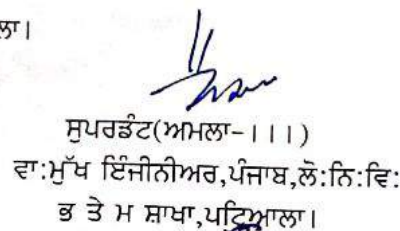 ਲਾ।
ਸੁਪਰਡੰਟ(ਅਮਲਾ-।।।)
ਵਾ:ਮੁੱਖ ਇੰਜੀਨੀਅਰ,ਪੰਜਾਬ,ਲੋ:ਨਿ:ਵਿ:
ਭ ਤੇ ਮ ਸ਼ਾਖਾ,ਪਟਿਆਲਾ।